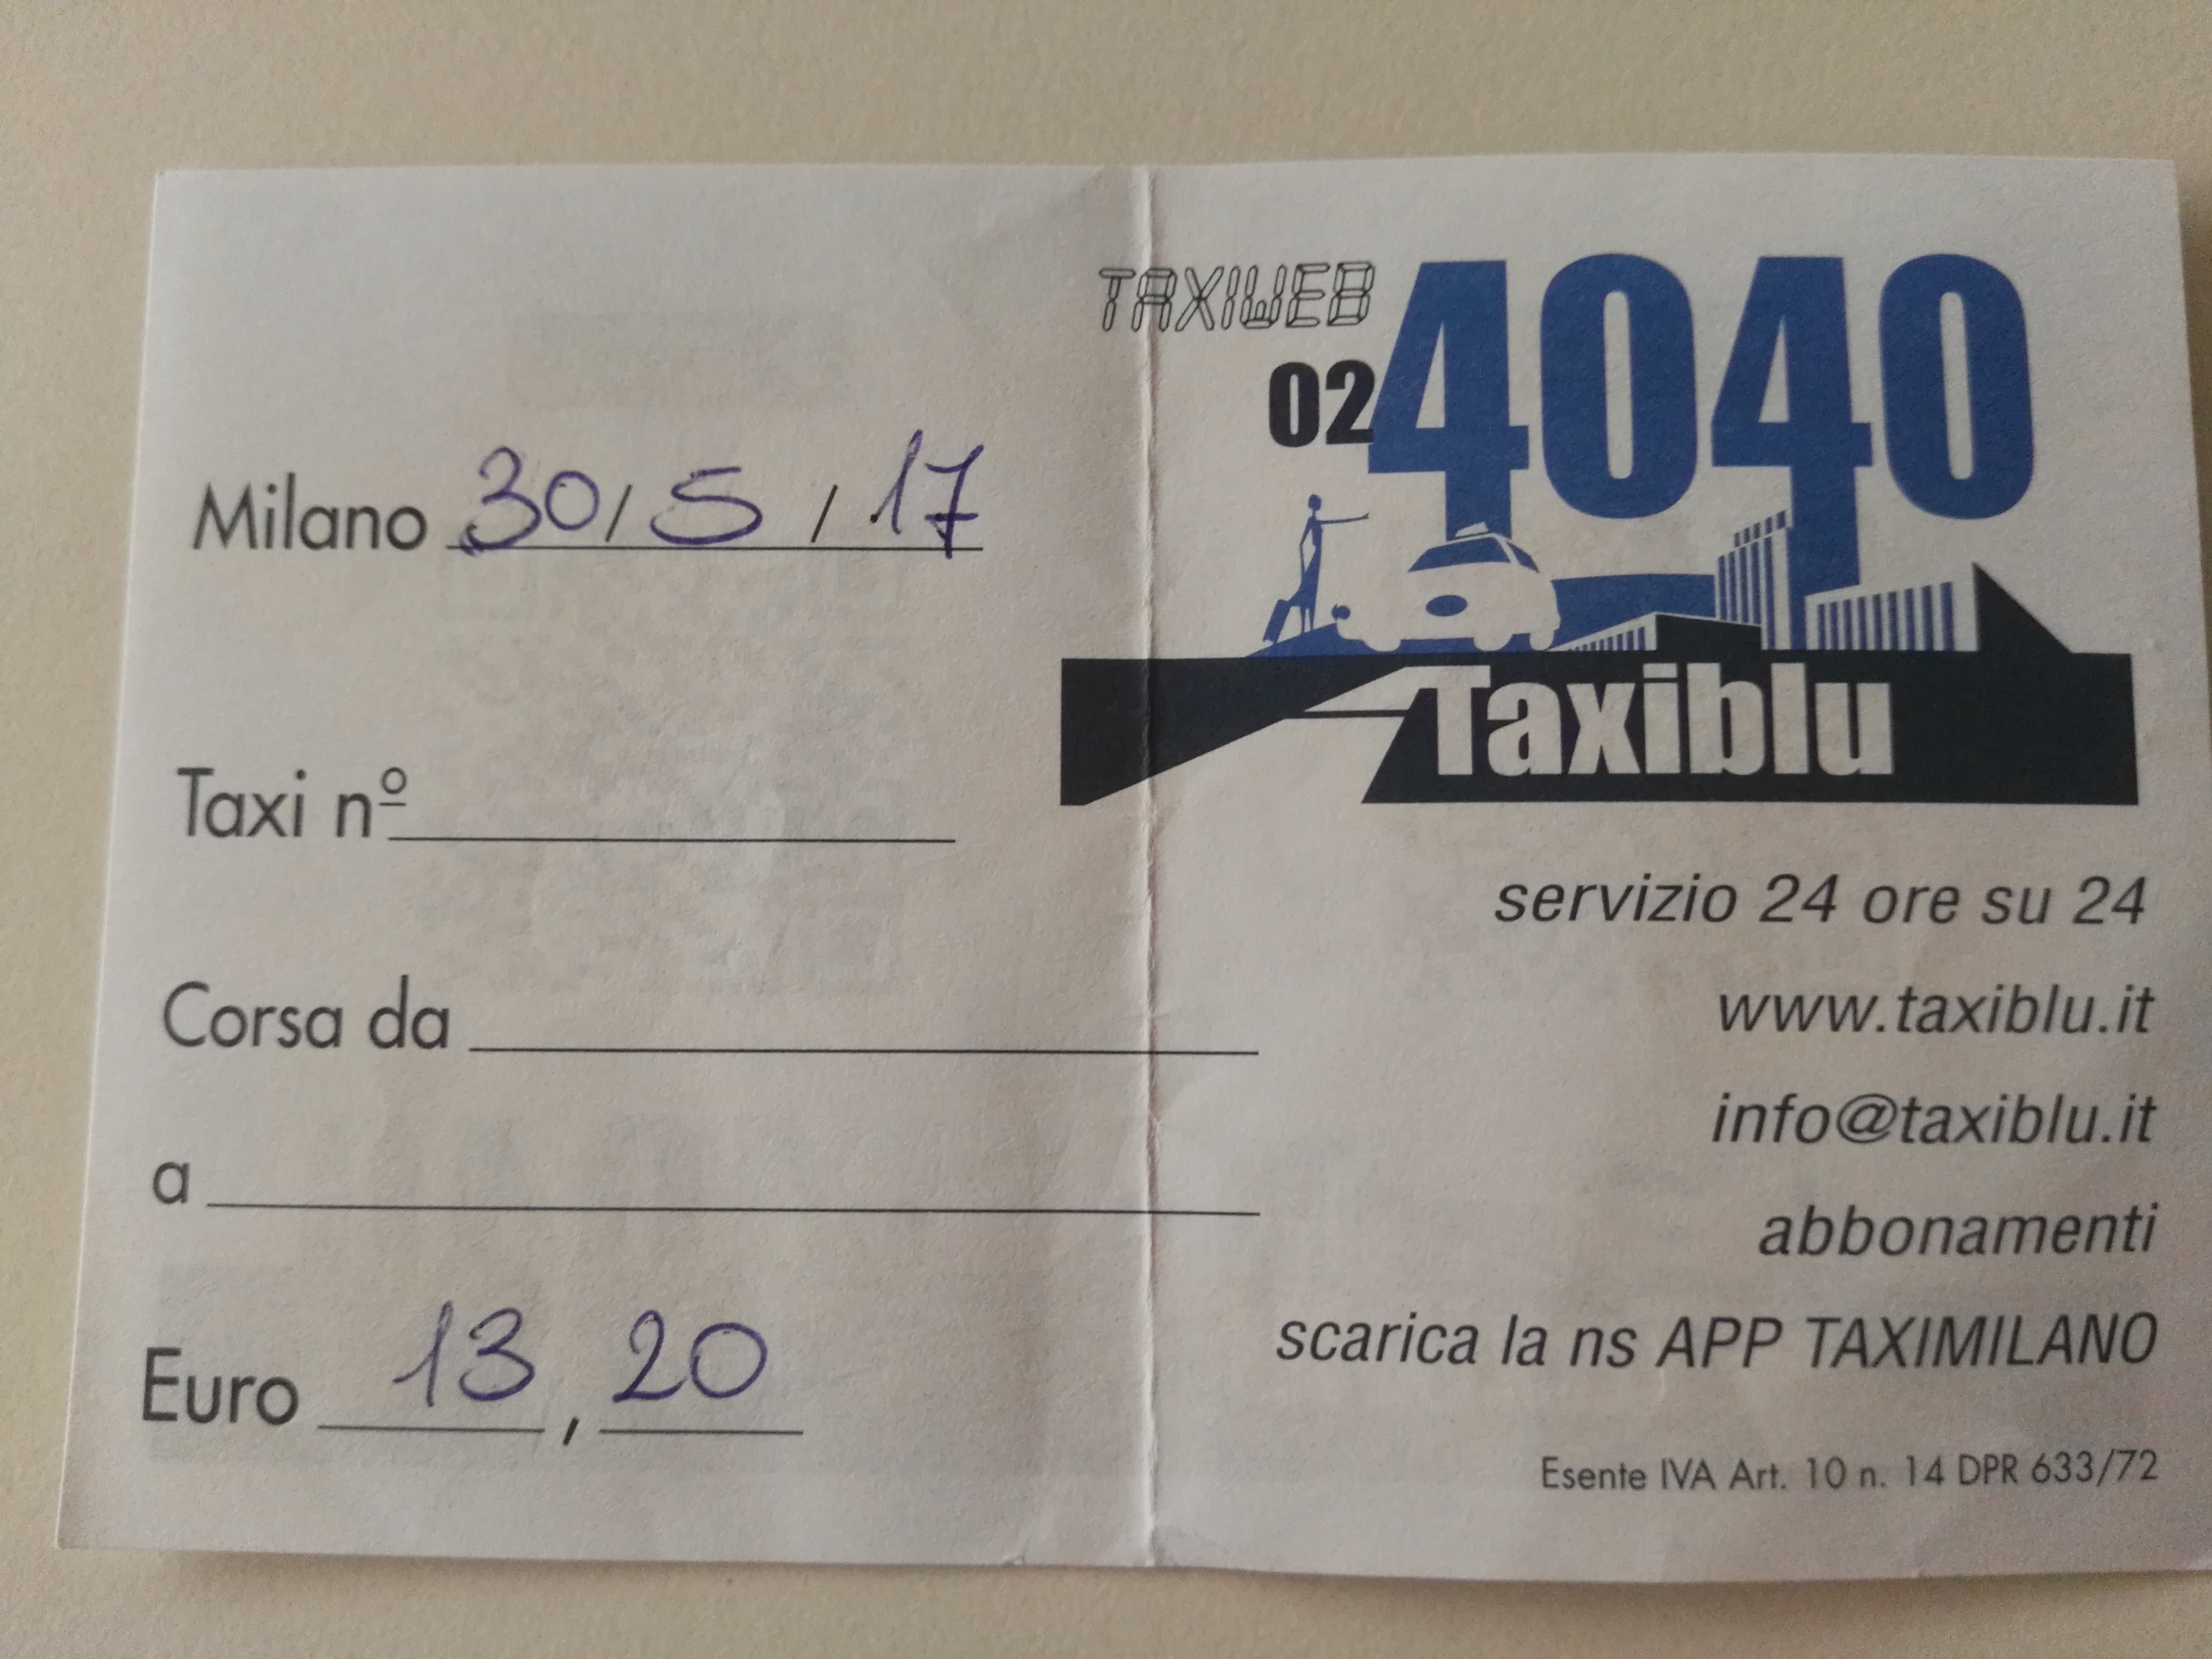 Milano 30/5/17
Taxi nº
Corsa da
a
Euro 13,20
TAXIWEB
02 4040
Taxiblu
servizio 24 ore su 24
www.taxiblu.it
info@taxiblu.it
abbonamenti
scarica la ns APP TAXIMILANO
Esente IVA Art. 10 n. 14 DPR 633/72